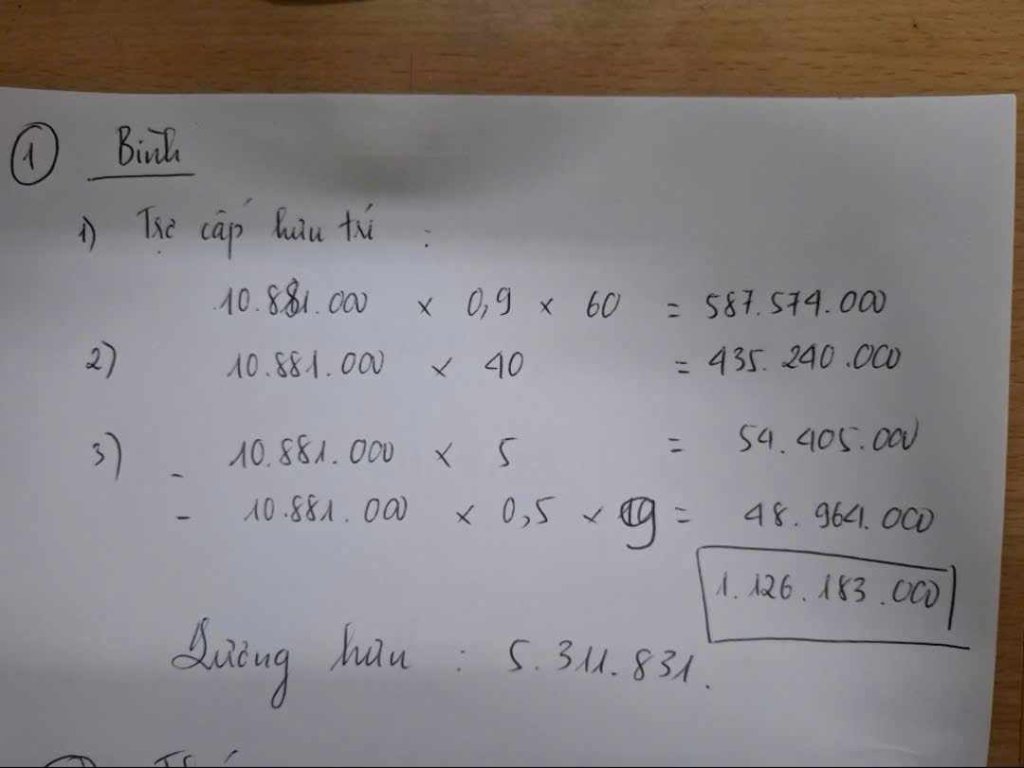 ① Bình
1) Trợ cấp hưu trí :
10.881.000 × 0,9 × 60 = 587.574.000
2) 10.881.000 × 40 = 435.240.000
3) - 10.881.000 × 5 = 54.405.000
- 10.881.000 × 0,5 × 9 = 48.964.000
1.126.183.000
Lương hưu : 5.311.831.